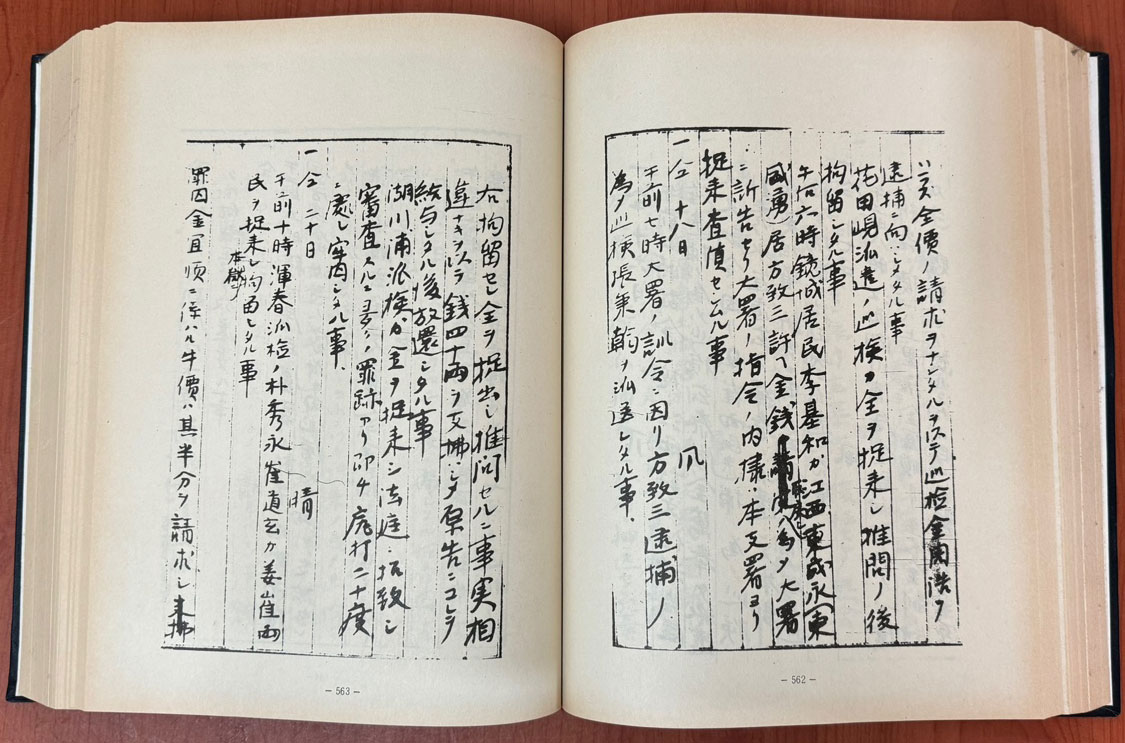 ハズ金價ノ請求ヲナシタルヲ以テ巡検金ヲ
逮捕ニ向ハシメタル事
花田峴派遣ノ巡検カ金ヲ捉来シ推問ノ後
拘留シタル事
午后六時鏡城居民李基和カ江西東
居方致三許ヘ金銭ノ為メ大署
ニ訴告セリ大署ノ指令ノ内據本支署ヨリ
捉来査慎セシムル事
一 仝 十八日 風
午前七時大署ノ訓令ニ因リ方致三逮捕ノ
為メ巡検張秉乾ヲ派送シタル事
- 562 -
右拘留セシ金ヲ捉出シ推問セルニ事実相
違ナキヲ以テ銭四十両ヲ支拂シメ原告ニコレヲ
給与シタル後放還シタル事
湖川浦派検カ金ヲ捉来シ法庭ニ拉致シ
審査スルニ罪跡アリ即チ笞打二十度
ニ處シ牢囚シタル事
一 仝 二十日 晴
午前十時渾春派検ノ朴秀永崔道玄カ姜崔両
民ヲ捉来シ拘留シタル事
罪囚金順ニ係ハル牛價ハ其半分ヲ請求シ
- 563 -